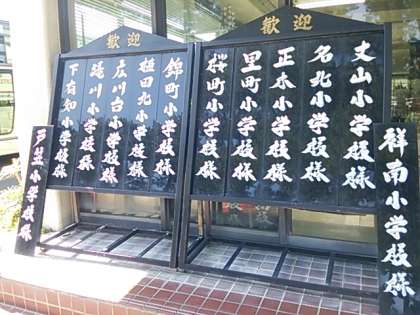 祥南小学校様
歓迎
丈山小学校様
名北小学校様
正木小学校様
里町小学校様
桜町小学校様
歓迎
錦町小学校様
植田北小学校様
広川台小学校様
滝川小学校様
下有知小学校様
戸笠小学校様